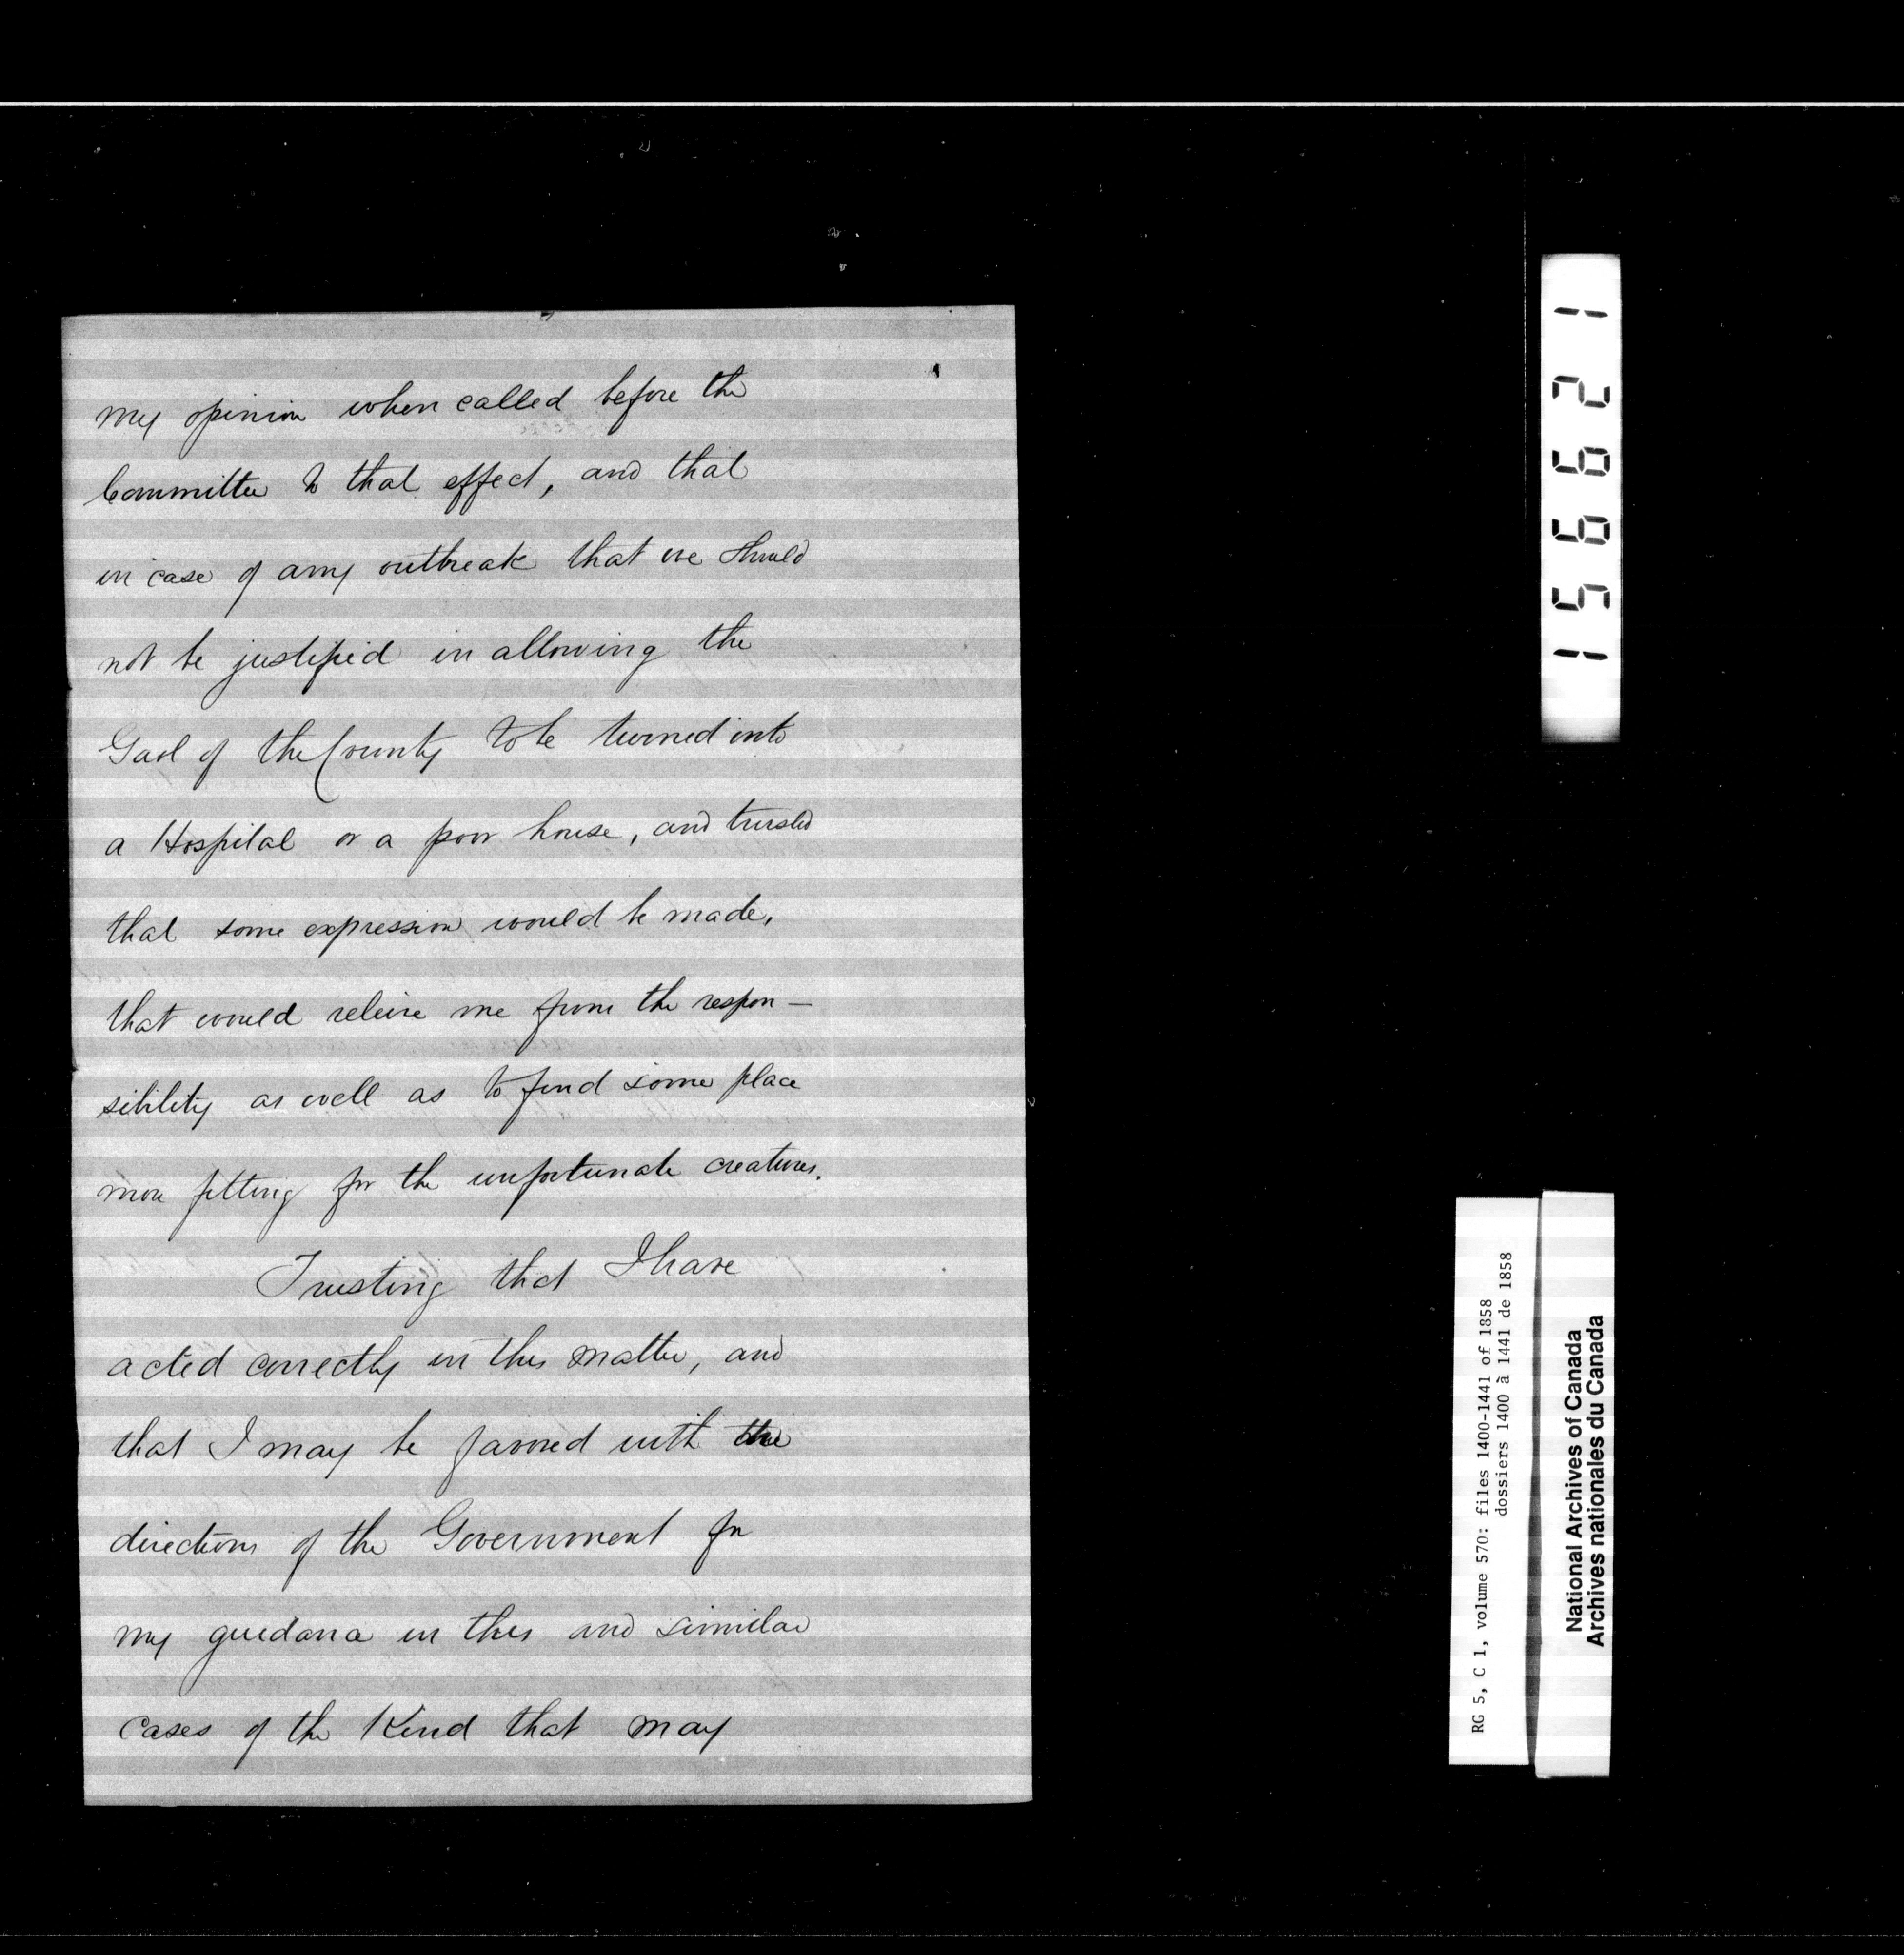 my opinion when called before the
Committee to that effect, and that
in case of any outbreak that we should
not be justified in allowing the
Gaol of the County to be turned into
a Hospital or a poor house, and trusted
that some expression would be made,
that would releive me from the respon—
sibility as well as to find some place
more fitting for the unfortunate creatures.
Trusting that I have
acted correctly in this matter, and
that I may be favored with the
directions of the Government for
my guidance in this and similar
cases of the Kind that may
156621
RG 5, C 1, volume 570: files 1400-1441 of 1858
dossiers 1400 à 1441 de 1858
National Archives of Canada
Archives nationales du Canada